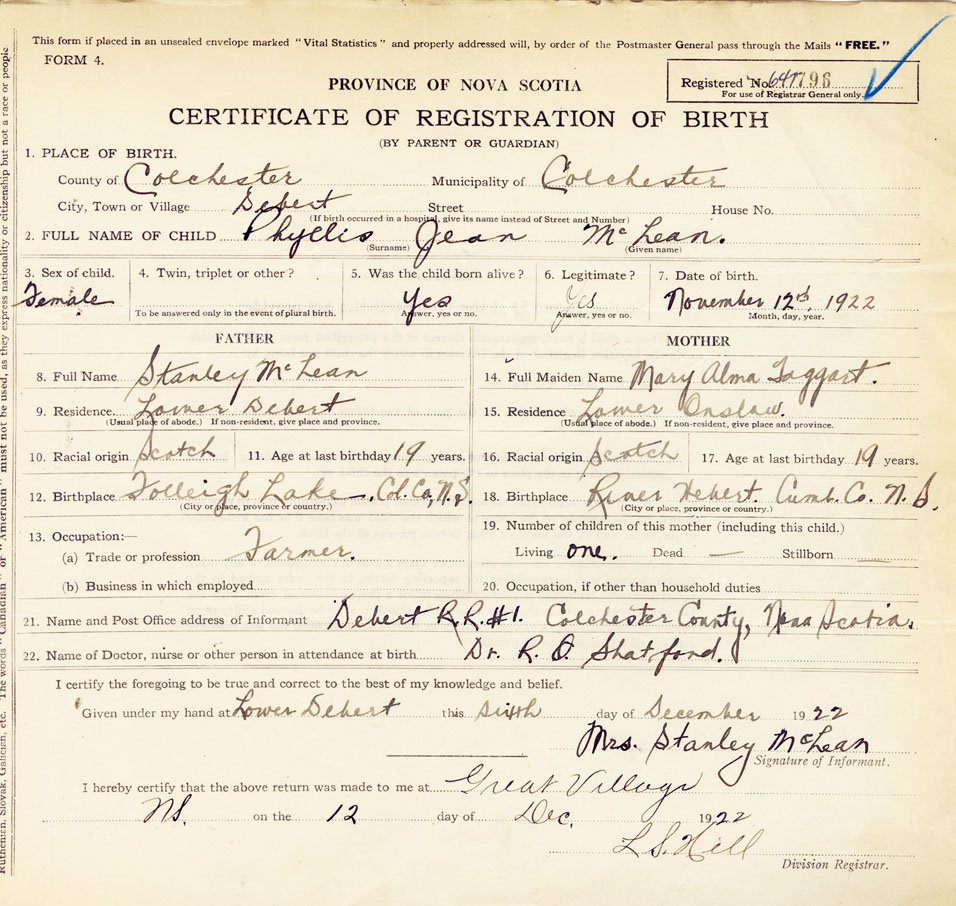 This form if placed in an unsealed envelope marked "Vital Statistics" and properly addressed will, by order of the Postmaster General pass through the Mails "FREE."
FORM 4.
PROVINCE OF NOVA SCOTIA
Registered No. 796
For use of Registrar General only.
CERTIFICATE OF REGISTRATION OF BIRTH
(BY PARENT OR GUARDIAN)
1. PLACE OF BIRTH.
County of Colchester Municipality of Colchester
City, Town or Village Debert Street House No.
(If birth occurred in a hospital, give its name instead of Street and Number)
2. FULL NAME OF CHILD Phyllis Jean McLean.
(Surname) (Given name)
3. Sex of child. 4. Twin, triplet or other? 5. Was the child born alive? 6. Legitimate? 7. Date of birth.
Female Yes Yes November 12rd, 1922
To be answered only in the event of plural birth. Answer, yes or no. Answer, yes or no. Month, day, year.
FATHER MOTHER
8. Full Name Stanley McLean 14. Full Maiden Name Mary Alma Taggart.
9. Residence. Lower Debert 15. Residence Lower Onslaw.
(Usual place of abode.) If non-resident, give place and province. (Usual place of abode.) If non-resident, give place and province.
10. Racial origin Scotch 11. Age at last birthday 19 years. 16. Racial origin Scotch 17. Age at last birthday 19 years.
12. Birthplace Folleigh Lake, Col. Co, N.S. 18. Birthplace River Hebert. Cumb. Co. N. S.
(City or place, province or country.) (City or place, province or country.)
13. Occupation:— 19. Number of children of this mother (including this child.)
(a) Trade or profession Farmer. Living one. Dead — Stillborn
(b) Business in which employed 20. Occupation, if other than household duties
21. Name and Post Office address of Informant Debert R.R.#1. Colchester County, Nova Scotia.
22. Name of Doctor, nurse or other person in attendance at birth Dr. R. O. Shatford.
I certify the foregoing to be true and correct to the best of my knowledge and belief.
Given under my hand at Lower Debert this sixth day of December 1922
Mrs. Stanley McLean
Signature of Informant.
I hereby certify that the above return was made to me at Great Village
NS. on the 12 day of Dec. 1922
L S. Hill
Division Registrar.
Ruthenian, Slovak, Galician, etc. The words "Canadian" or "American" must not be used, as they express nationality or citizenship but not a race or people